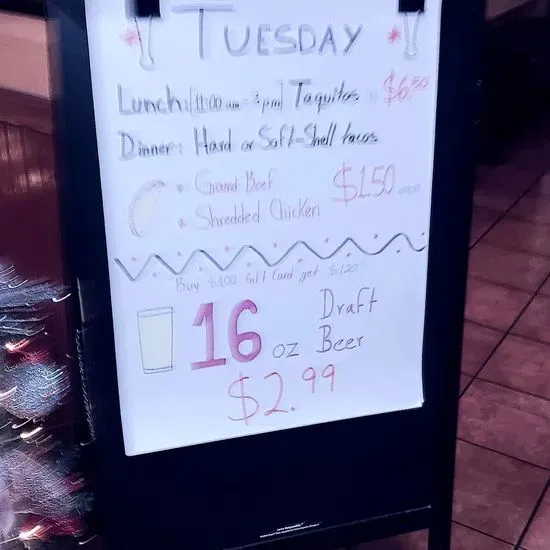 TUESDAY
Lunch: [11:00 am - 3 pm] Taquitos $6.50
Dinner: Hard or Soft-Shell tacos
* Ground Beef $1.50
* Shredded Chicken
Buy $100 Gift Card get $120
16 oz Draft Beer
$2.99